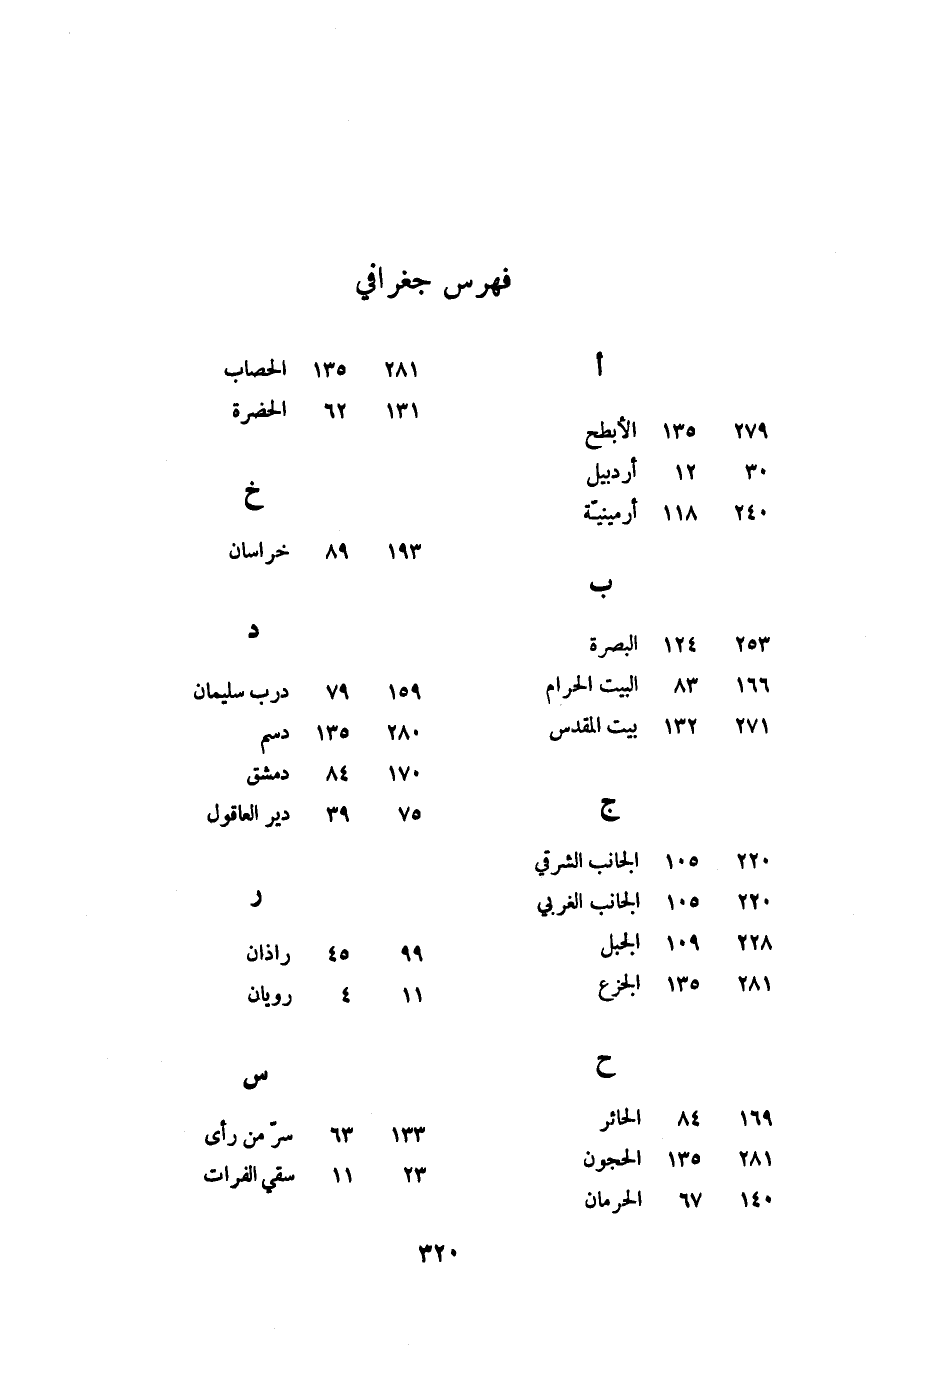 فهرس جغرافي
أ
الأبطح ١٣٥ ٢٧٩
أردبيل ١٢ ٣٠
أرمينيّة ١١٨ ٢٤٠
ب
البصرة ١٢٤ ٢٥٣
البيت الحرام ٨٣ ١٦٦
بيت المقدس ١٣٢ ٢٧١
ج
الجانب الشرقي ١٠٥ ٢٢٠
الجانب الغربي ١٠٥ ٢٢٠
الجبل ١٠٩ ٢٢٨
الجزع ١٣٥ ٢٨١
ح
الحائر ٨٤ ١٦٩
الحجون ١٣٥ ٢٨١
الحرمان ٦٧ ١٤٠
الحصاب ١٣٥ ٢٨١
الحضرة ٦٢ ١٣١
خ
خراسان ٨٩ ١٩٣
د
درب سليمان ٧٩ ١٥٩
دسم ١٣٥ ٢٨٠
دمشق ٨٤ ١٧٠
دير العاقول ٣٩ ٧٥
ر
راذان ٤٥ ٩٩
رويان ٤ ١١
س
سرّ من رأى ٦٣ ١٣٣
سقي الفرات ١١ ٢٣
٣٢٠